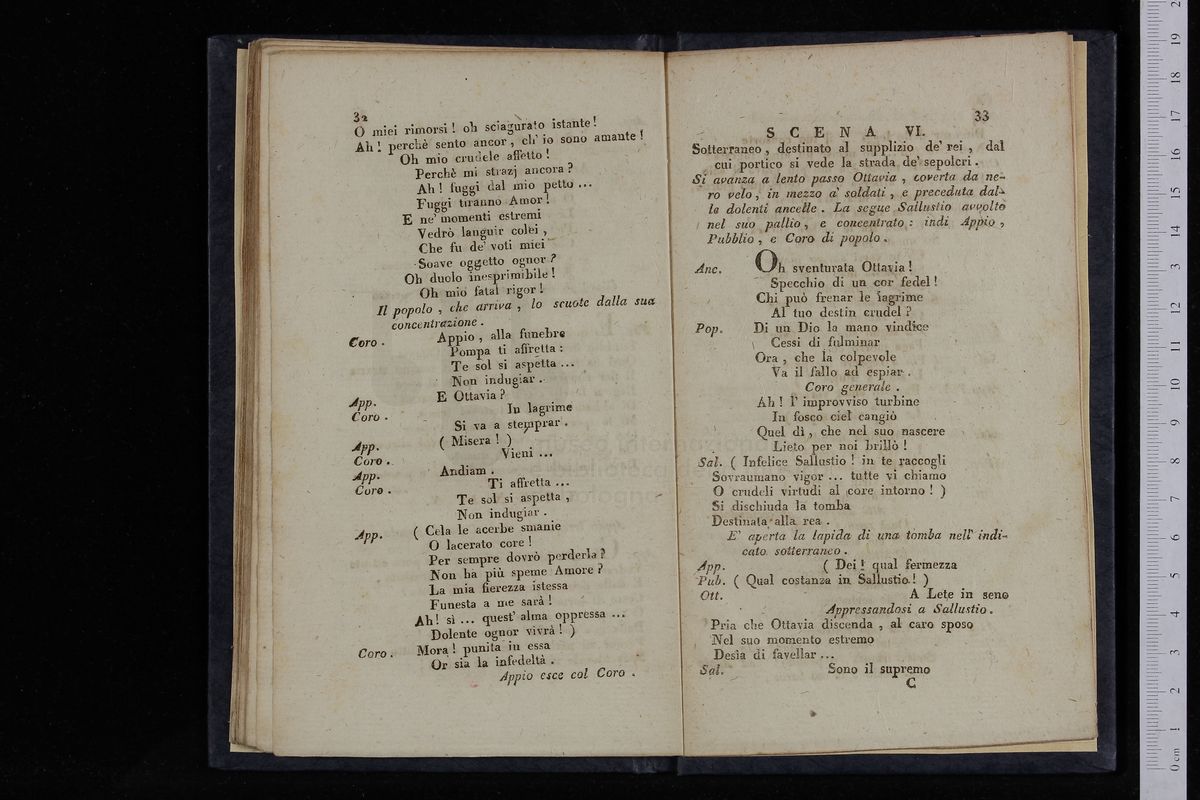 32
O miei rimorsi ! oh sciagurato istante !
Ah ! perchè sento ancor , ch' io sono amante !
Oh mio crudele affetto !
Perchè mi strazj ancora ?
Ah ! fuggi dal mio petto ...
Fuggi tiranno Amor !
E ne' momenti estremi
Vedrò languir colei ,
Che fu de' voti miei
Soave oggetto ognor ?
Oh duolo inesprimibile !
Oh mio fatal rigor !
Il popolo , che arriva , lo scuote dalla sua
concentrazione .
Coro . Appio , alla funebre
Pompa ti affretta :
Te sol si aspetta ...
Non indugiar .
App. E Ottavia ?
Coro . In lagrime
Si va a stemprar .
App. ( Misera ! )
Coro . Vieni ...
App. Andiam .
Coro . Ti affretta ...
Te sol si aspetta ,
Non indugiar .
App. ( Cela le acerbe smanie
O lacerato core !
Per sempre dovrò perderla ?
Non ha più speme Amore ?
La mia fierezza istessa
Funesta a me sarà !
Ah ! sì ... quest' alma oppressa ...
Dolente ognor vivrà ! )
Coro . Mora ! punita in essa
Or sia la infedeltà .
Appio esce col Coro .
33
SCENA VI.
Sotterraneo , destinato al supplizio de' rei , dal
cui portico si vede la strada de' sepolcri .
Si avanza a lento passo Ottavia , coverta da ne-
ro velo , in mezzo a' soldati , e preceduta dal-
le dolenti ancelle . La segue Sallustio avvolto
nel suo pallio , e concentrato : indi Appio ,
Pubblio , e Coro di popolo .
Anc. Oh sventurata Ottavia !
Specchio di un cor fedel !
Chi può frenar le lagrime
Al tuo destin crudel ?
Pop. Di un Dio la mano vindice
Cessi di fulminar
Ora , che la colpevole
Va il fallo ad espiar .
Coro generale .
Ah ! l' improvviso turbine
In fosco ciel cangiò
Quel dì , che nel suo nascere
Lieto per noi brillò !
Sal. ( Infelice Sallustio ! in te raccogli
Sovraumano vigor ... tutte vi chiamo
O crudeli virtudi al core intorno ! )
Si dischiuda la tomba
Destinata alla rea .
E' aperta la lapida di una tomba nell' indi-
cato sotterraneo .
App. ( Dei ! qual fermezza
Pub. ( Qual costanza in Sallustio ! )
Ott. A Lete in seno
Appressandosi a Sallustio .
Pria che Ottavia discenda , al caro sposo
Nel suo momento estremo
Desia di favellar ...
Sal. Sono il supremo
C